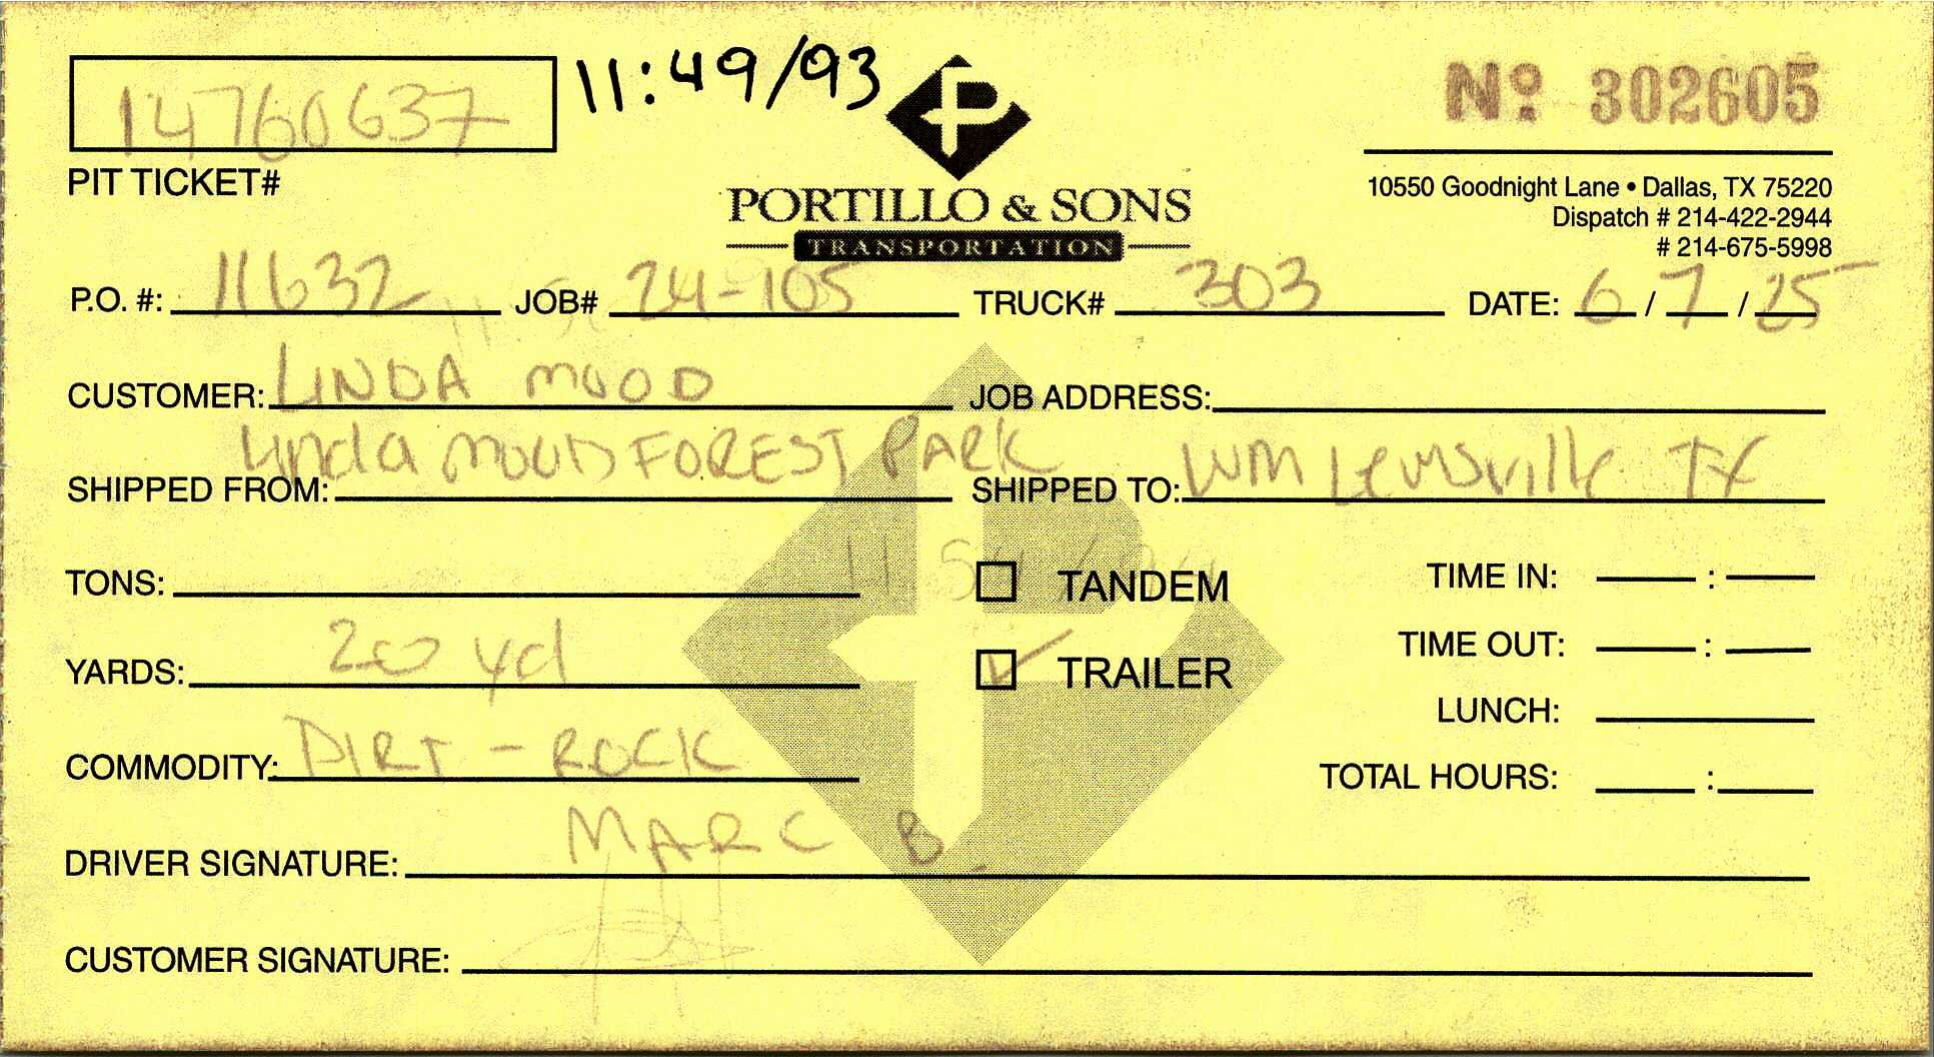 14760637 11:49/93 Nº 302605
PIT TICKET#
PORTILLO & SONS
TRANSPORTATION
10550 Goodnight Lane • Dallas, TX 75220
Dispatch # 214-422-2944
# 214-675-5998
P.O. #: 11632 JOB# 24-105 TRUCK# 303 DATE: 6/7/25
CUSTOMER: LINDA MOOD JOB ADDRESS:
Linda MOOD FOREST PARK
SHIPPED FROM: SHIPPED TO: WM Lewisville TX
TONS: TANDEM TIME IN: :
YARDS: 20 yd TRAILER TIME OUT: :
LUNCH:
COMMODITY: DIRT - ROCK TOTAL HOURS: :
DRIVER SIGNATURE: MARC B.
CUSTOMER SIGNATURE: